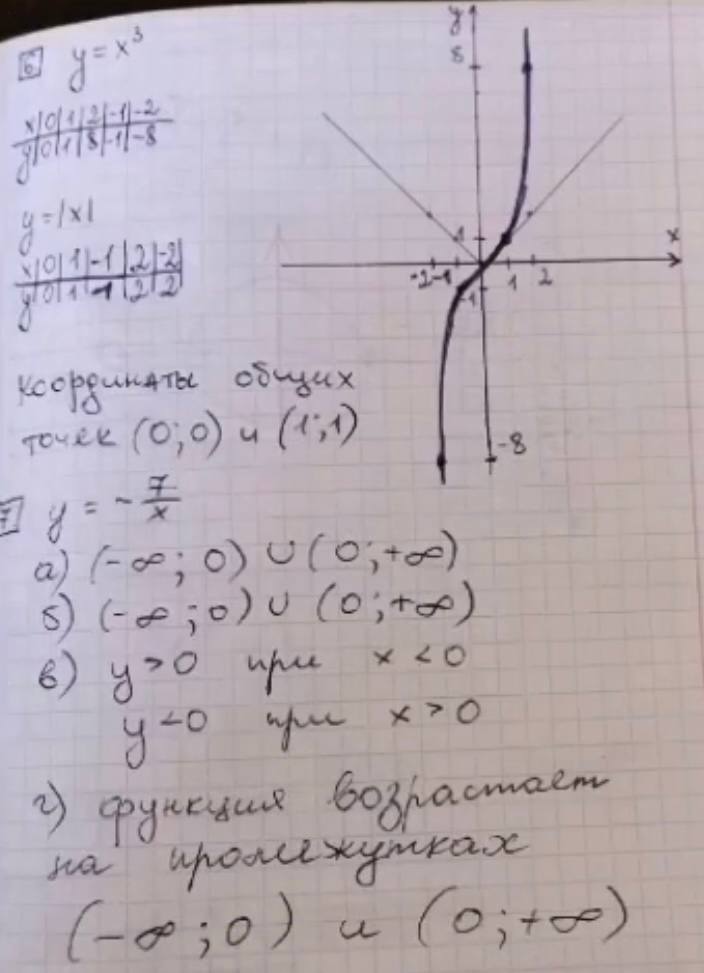 6 y = x³
x|0|1|2|-1|-2
y|0|1|8|-1|-8
y = |x|
x|0|1|-1|2|-2|
y|0|1|1|2|2|
координаты общих
точек (0;0) и (1;1)
y
8
1
x
-2 -1 1 2
-1
-8
7 y = - 7/x
а) (-∞; 0) ∪ (0;+∞)
б) (-∞;0) ∪ (0;+∞)
в) y > 0 при x < 0
y < 0 при x > 0
г) функция возрастает
на промежутках
(-∞;0) и (0;+∞)